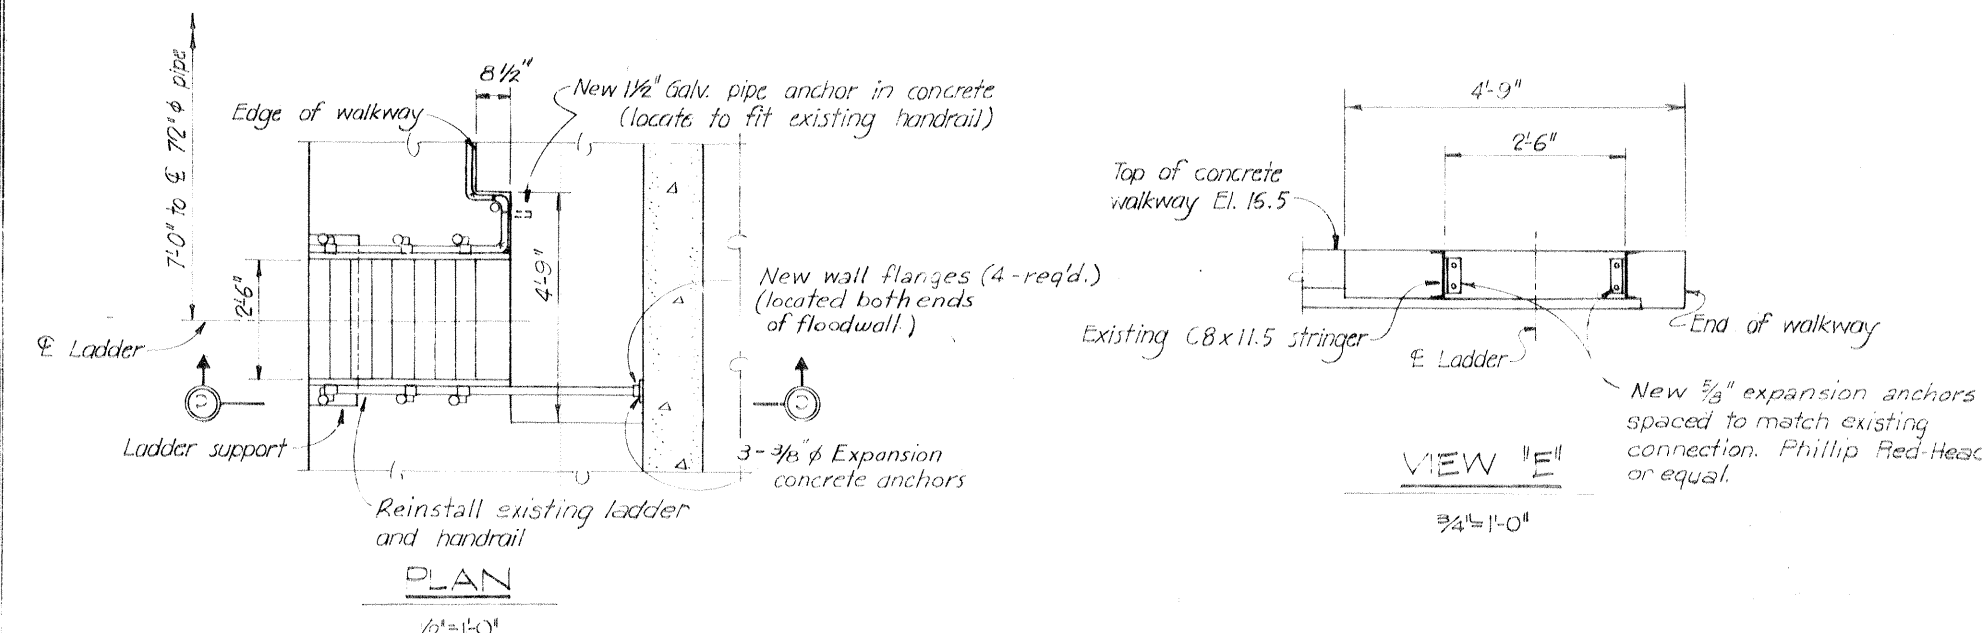 7'-0" to ℄ 72" φ pipe
8 1/2"
Edge of walkway
New 1 1/2" Galv. pipe anchor in concrete
(locate to fit existing handrail)
2'-6"
4'-9"
New wall flanges (4-req'd.)
(located both ends
of floodwall)
℄ Ladder
Ladder support
3-3/8" φ Expansion
concrete anchors
Reinstall existing ladder
and handrail
PLAN
1/2"=1'-0"
4'-9"
2'-6"
Top of concrete
walkway El. 15.5
Existing C8x11.5 stringer
℄ Ladder
End of walkway
New 5/8" expansion anchors
spaced to match existing
connection. Phillip Red-Head
or equal.
VIEW "E"
3/4"=1'-0"